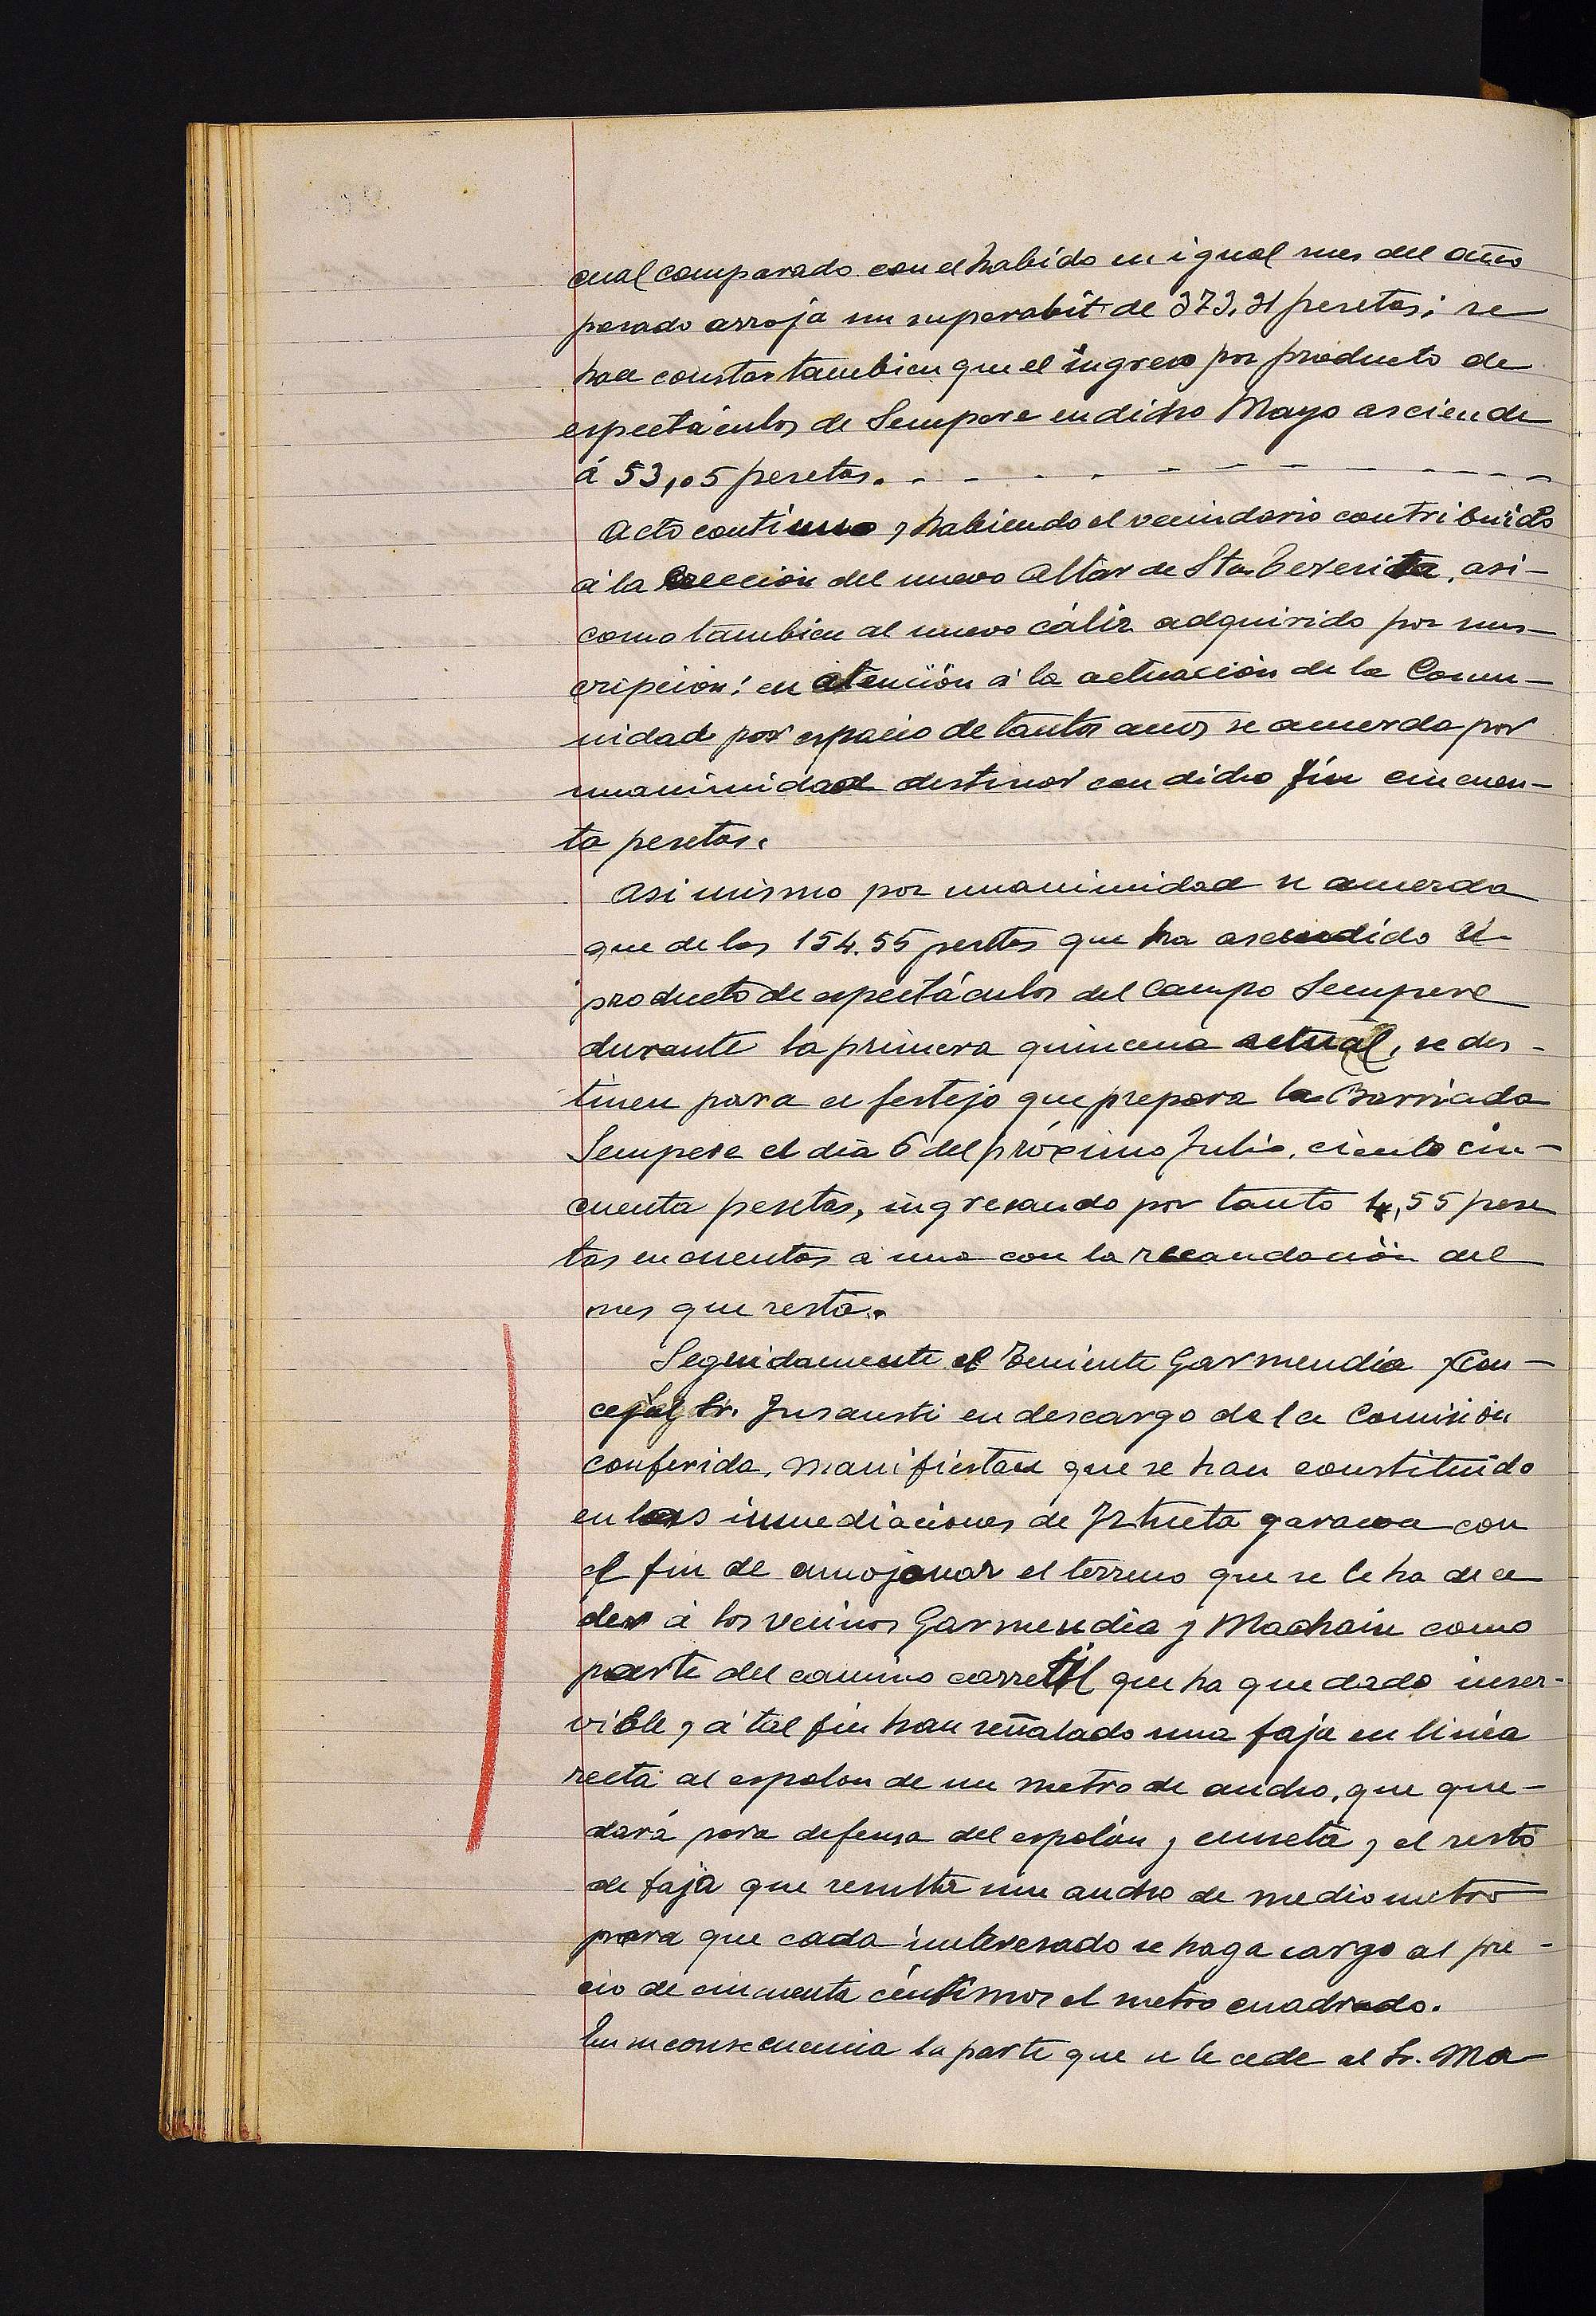 cual comparado con el habido en igual mes del año
pasado arroja un superabit de 373,31 pesetas; se
hace constar tambien que el ingreso por producto de
espectáculos de Sempere en dicho Mayo asciende
á 53,05 pesetas. - - - - - - - - - -
Acto continuo y habiendo el vecindario contribuido
á la Erección del nuevo Altar de Sta. Teresita, asi-
como tambien al nuevo cáliz adquirido por sus-
cripción: en atención á la actuación de la Comu-
nidad por espacio de tantos años se acuerda por
unanimidad destinar con dicho fin cincuen-
ta pesetas.
Asi mismo por unanimidad se acuerda
que de las 154.55 pesetas que ha ascendido el
producto de espectáculos del Campo Sempere
durante la primera quincena actual, se des-
tinen para el festejo que prepara la Barriada
Sempere el dia 6 del próximo Julio, ciento cin-
cuenta pesetas, ingresando por tanto 4,55 pese
tas en cuentas a una con la recaudación del
mes que resta.
Seguidamente el Teniente Garmendia y Con-
cejal Sr. Insausti en descargo de la Comisión
conferida, manifiestan que se han constituido
en las inmediaciones de Iztueta garaua con
el fin de amojonar el terreno que se le ha de ce
der á los vecinos Garmendia y Machain como
parte del camino carretil que ha quedado inser-
vible, y á tal fin han señalado una faja en linea
recta al espolon de un metro de ancho, que que-
dará para defensa del espolón y cuneta y el resto
de faja que resulta un ancho de medio metro
para que cada interesado se haga cargo al pre-
cio de cincuenta céntimos el metro cuadrado.
En su consecuencia la parte que se le cede al Sr. Ma